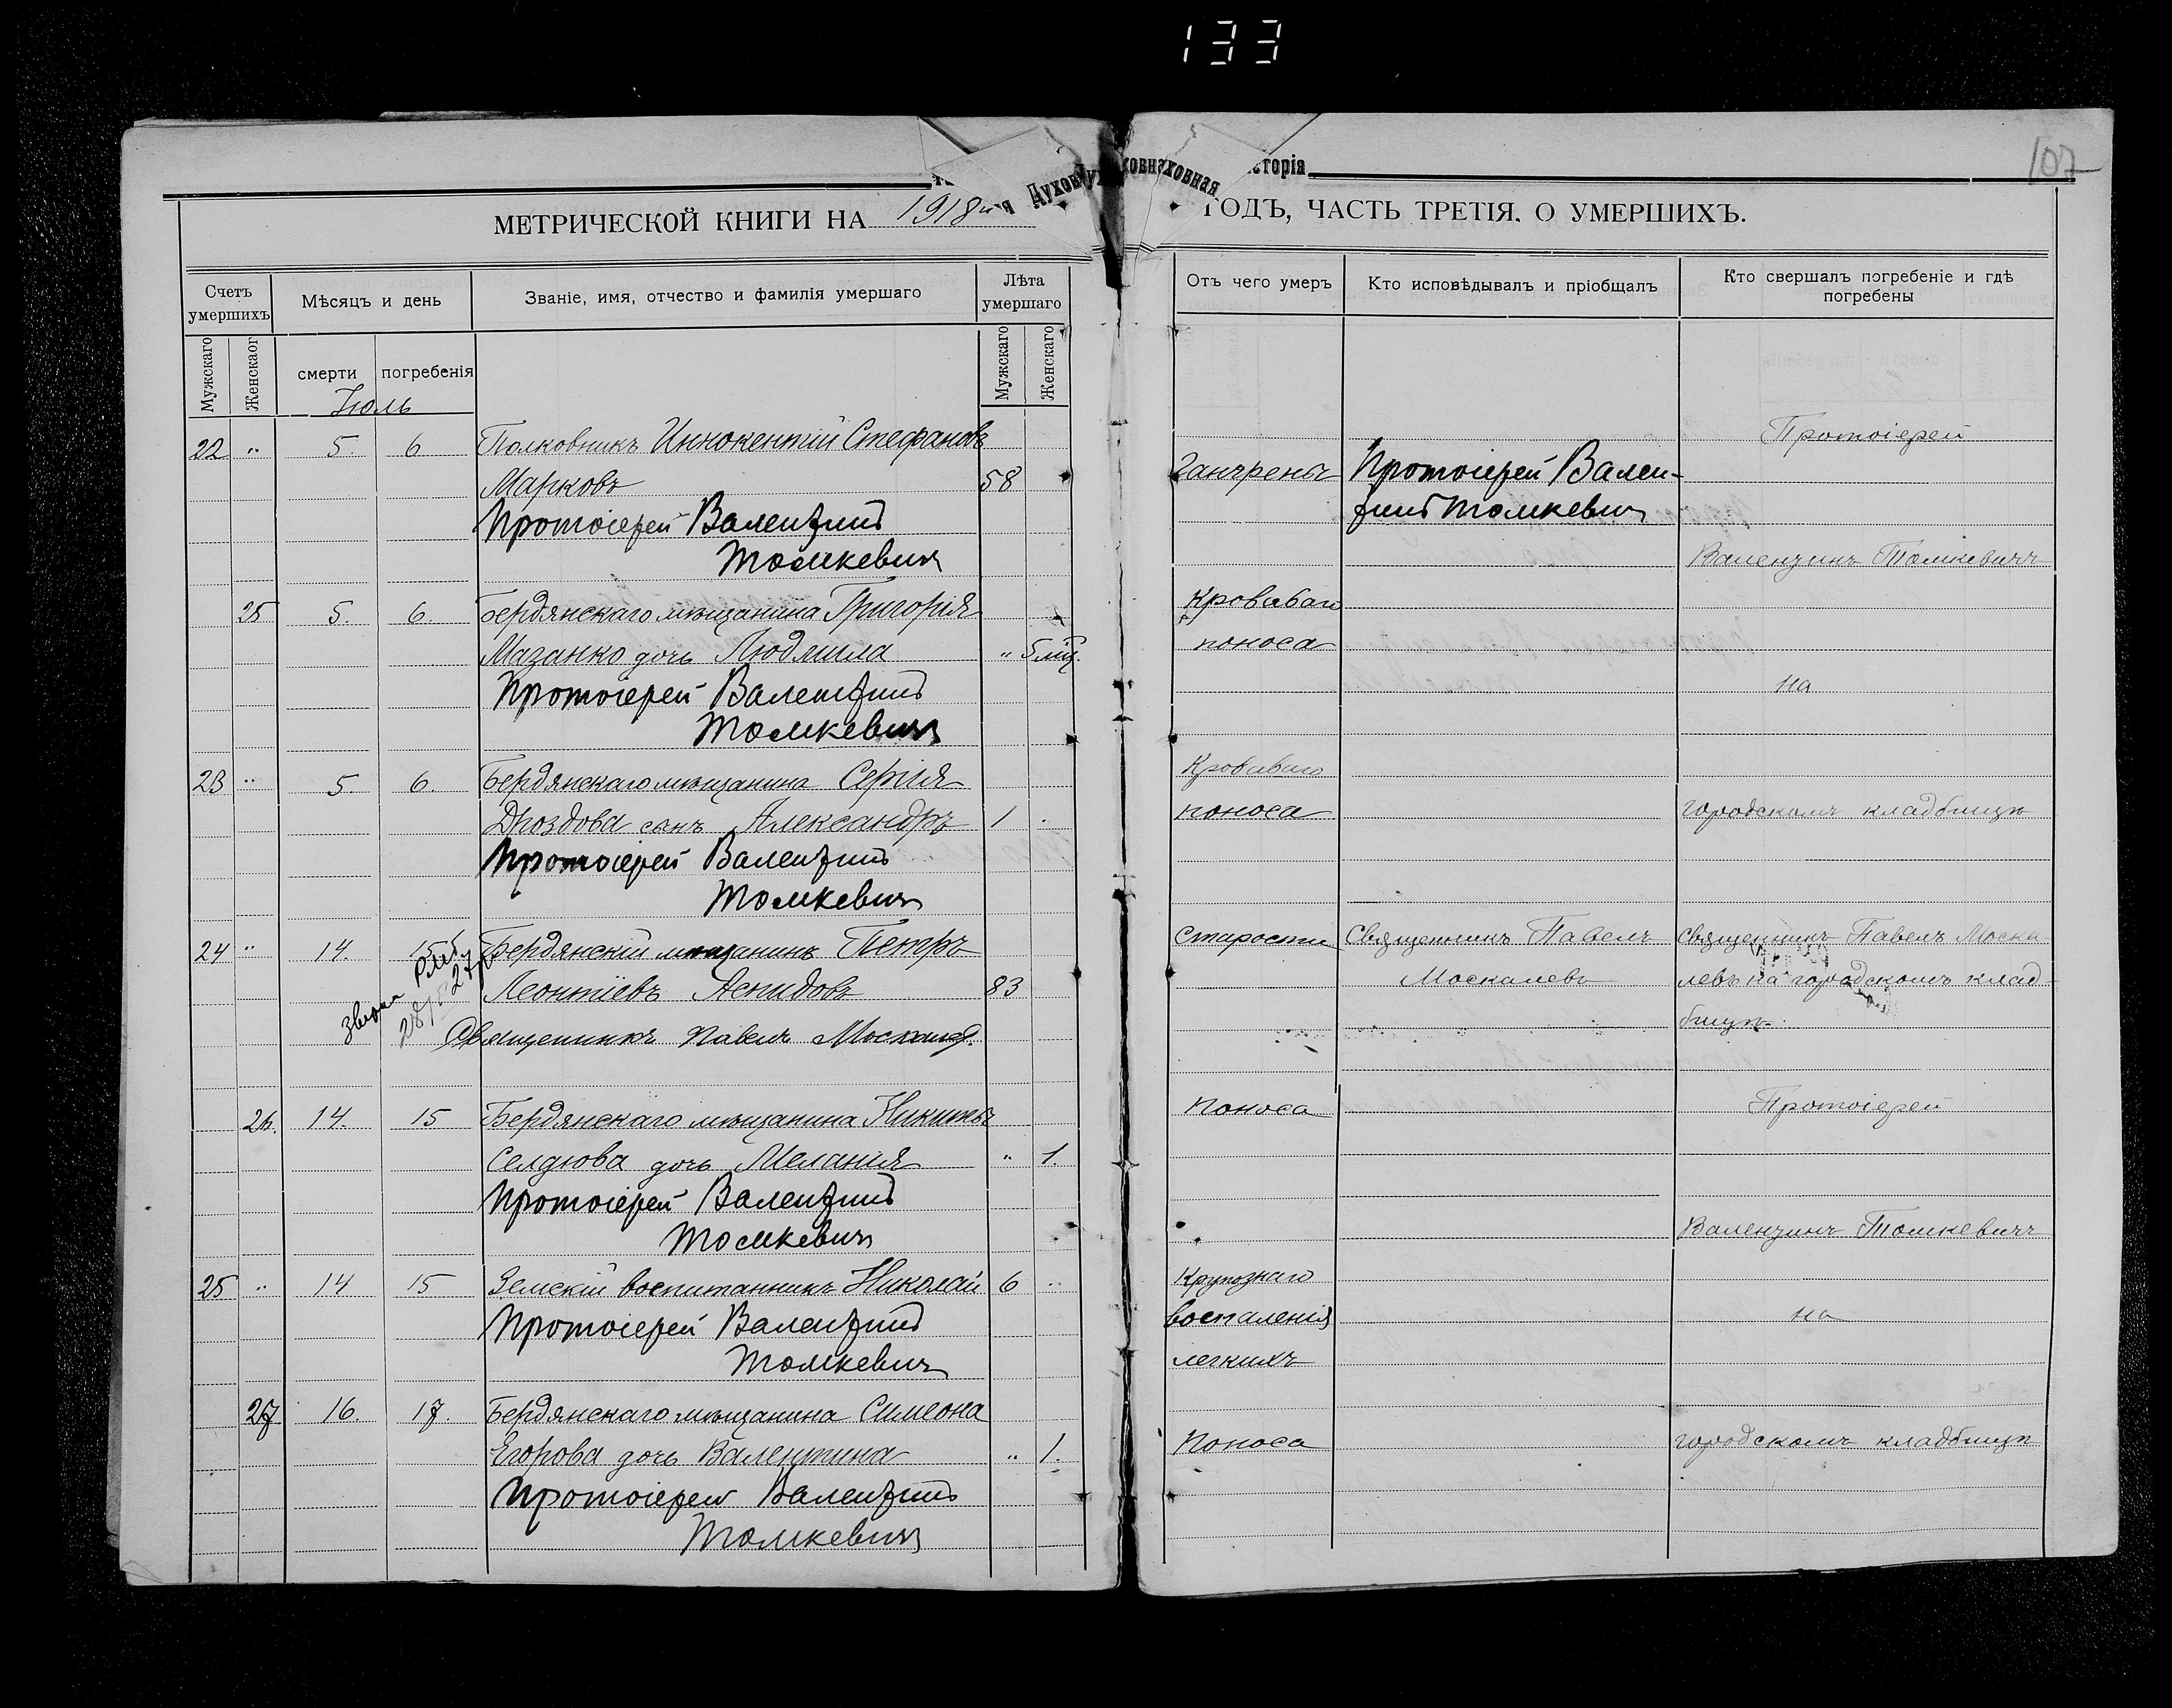 133
107
Духовная
ховная
сторія
МЕТРИЧЕСКОЙ КНИГИ НА 1918й
ГОДЪ, ЧАСТЬ ТРЕТІЯ. О УМЕРШИХЪ.
Счетъ умершихъ
Мѣсяцъ и день
Званіе, имя, отчество и фамилія умершаго
Лѣта умершаго
Отъ чего умеръ
Кто исповѣдывалъ и пріобщалъ
Кто свершалъ погребеніе и гдѣ погребены
Мужскаго
Женскаог
смерти
погребенія
Мужскаго
Женскаго
Іюль
22 " 5. 6 Полковникъ Иннокентій Стефановъ
Марковъ 58
Протоіерей Валентинъ
Томкевичъ
Гангрены
Протоіерей Вален-
тинъ Томкевичъ
Протоіерей
Валентинъ Томкевичъ
25 5. 6. Бердянскаго мѣщанина Григорія
Мазанко дочь Людмила " 5 мѣц.
Протоіерей Валентинъ
Томкевичъ
Кроваваго
поноса
на
23 " 5. 6. Бердянскаго мѣщанина Сергія
Дроздова сынъ Александръ 1
Протоіерей Валентинъ
Томкевичъ
Кроваваго
поноса
городскомъ кладбищѣ
24 " 14. 15 Бердянскій мѣщанинъ Петръ
Леонтіевъ 83
Священникъ Павелъ Москалев.
Старости
Священникъ Павелъ
Москалевъ
Священникъ Павелъ Моска
левъ на городскомъ клад-
бищѣ.
26. 14. 15 Бердянскаго мѣщанина Никиты
Селдюва дочь Меланія " 1.
Протоіерей Валентинъ
Томкевичъ
Поноса
Протоіерей
Валентинъ Томкевичъ
25 " 14 15 Земскій воспитанникъ Николай 6 "
Протоіерей Валентинъ
Томкевичъ
Крупознаго
воспаленія
легкихъ
на
27 16. 17. Бердянскаго мѣщанина Симеона
Егорова дочь Валентина " 1.
Протоіерей Валентинъ
Томкевичъ
Поноса
городскомъ кладбищѣ